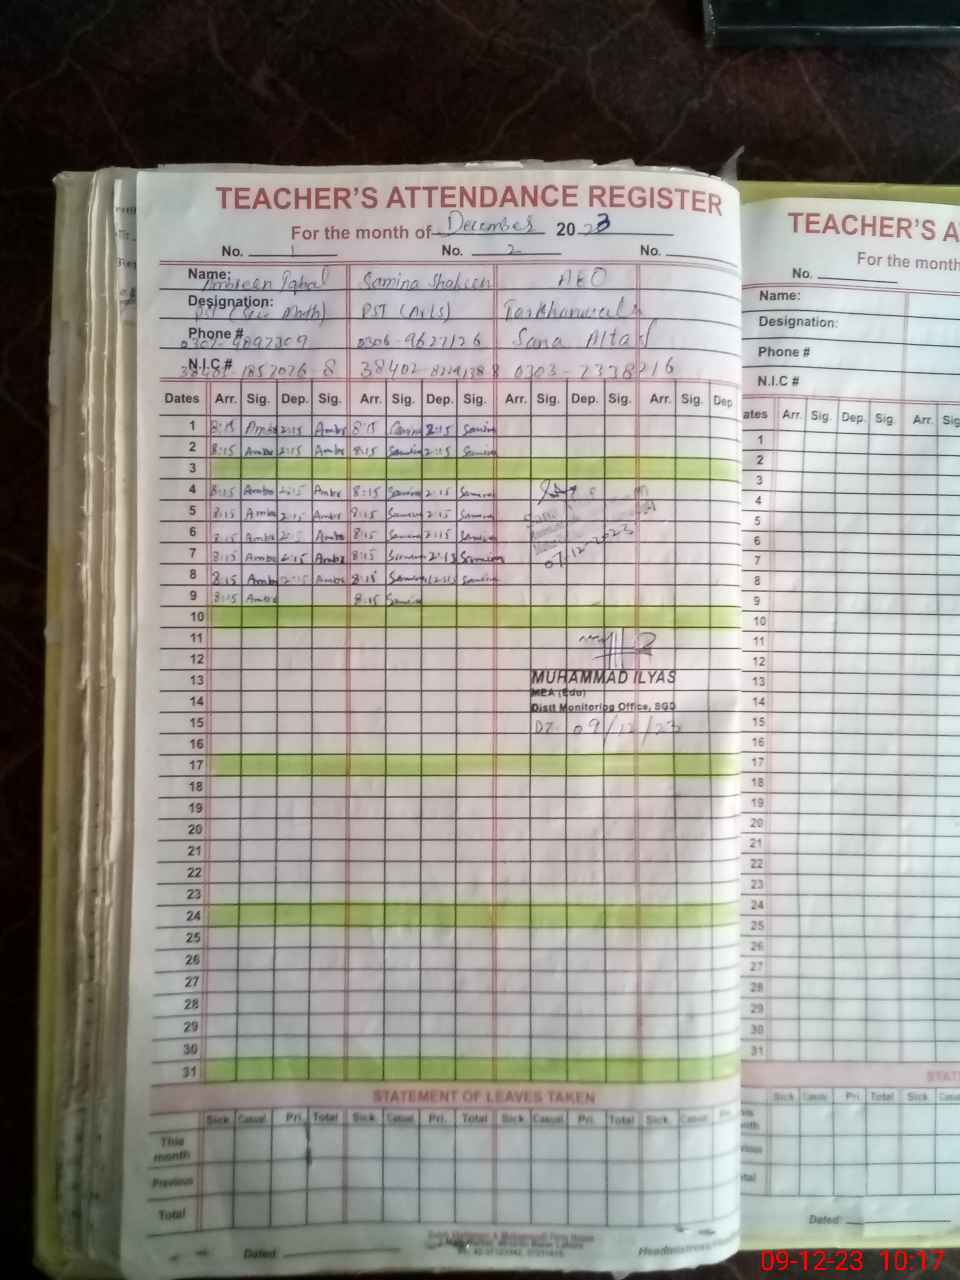 TEACHER'S ATTENDANCE REGISTER
For the month of December 2023
No. 1 No. 2 No.
Name: Ambreen Iqbal Samina Shaheen AEO
Designation: PST (Sci Math) PST (Arts)
Phone # 0306-9627126 Sana Altaf
N.I.C # 0303-7338216
Dates Arr. Sig. Dep. Sig. Arr. Sig. Dep. Sig. Arr. Sig. Dep. Sig. Arr. Sig. Dep
1 8:15 Ambr 2:15 Ambr 8:15 Samina 2:15 Samina
2 8:15 Ambr 2:15 Ambr 8:15 Samina 2:15 Samina
3
4 8:15 Ambr 2:15 Ambr 8:15 Samina 2:15 Samina
5 8:15 Ambr 2:15 Ambr 8:15 Samina 2:15 Samina
6 8:15 Ambr 2:15 Ambr 8:15 Samina 2:15 Samina
7 8:15 Ambr 2:15 Ambr 8:15 Samina 2:15 Samina
07/12-2023
8 8:15 Ambr 2:15 Ambr 8:15 Samina 2:15 Samina
9 8:15 Ambr 8:15 Samina
10
11
12
13
MUHAMMAD ILYAS
MEA (Edu)
14
Distt Monitoring Office, SGD
15
DT- 09/12/23
16
17
18
19
20
21
22
23
24
25
26
27
28
29
30
31
STATEMENT OF LEAVES TAKEN
Sick Casual Pri. Total Sick Casual Pri. Total Sick Casual Pri. Total Sick Casual
This month
Previous
Total
Dated:
TEACHER'S A
For the month
No.
Name:
Designation:
Phone #
N.I.C #
ates Arr. Sig. Dep. Sig. Arr. Sig
1
2
3
4
5
6
7
8
9
10
11
12
13
14
15
16
17
18
19
20
21
22
23
24
25
26
27
28
29
30
31
STAT
Sick Casual Pri. Total Sick Casu
Dated:
09-12-23 10:17